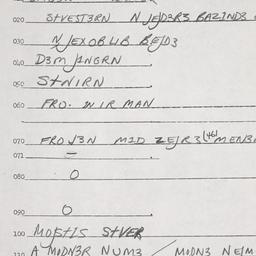 020 STVEST3RN N JEJD3R3 BAZIND3
030 NJEXOBLUB BEJD3
040 D3M JINGRN
050 STNIRN
060 FRO. WIR MAN
070 FROJ3N MID ZEJR3 (46) MEN3
071 =
080 O
090 O
100 MOJSTJS STVER
110 A MODN3R NUM3 / MODN3 NEJM